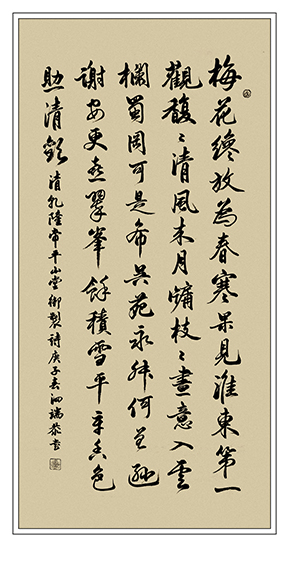 梅花纔放為春寒果見淮東第一
觀馥〻清風来月牖枝〻畫意入雲
欄蜀岡可是希吳苑永叔何曾遜
謝安更喜翠峯餘積雪平章香色
助清歡 清乾隆帝平山堂御製詩庚子春泗端恭書